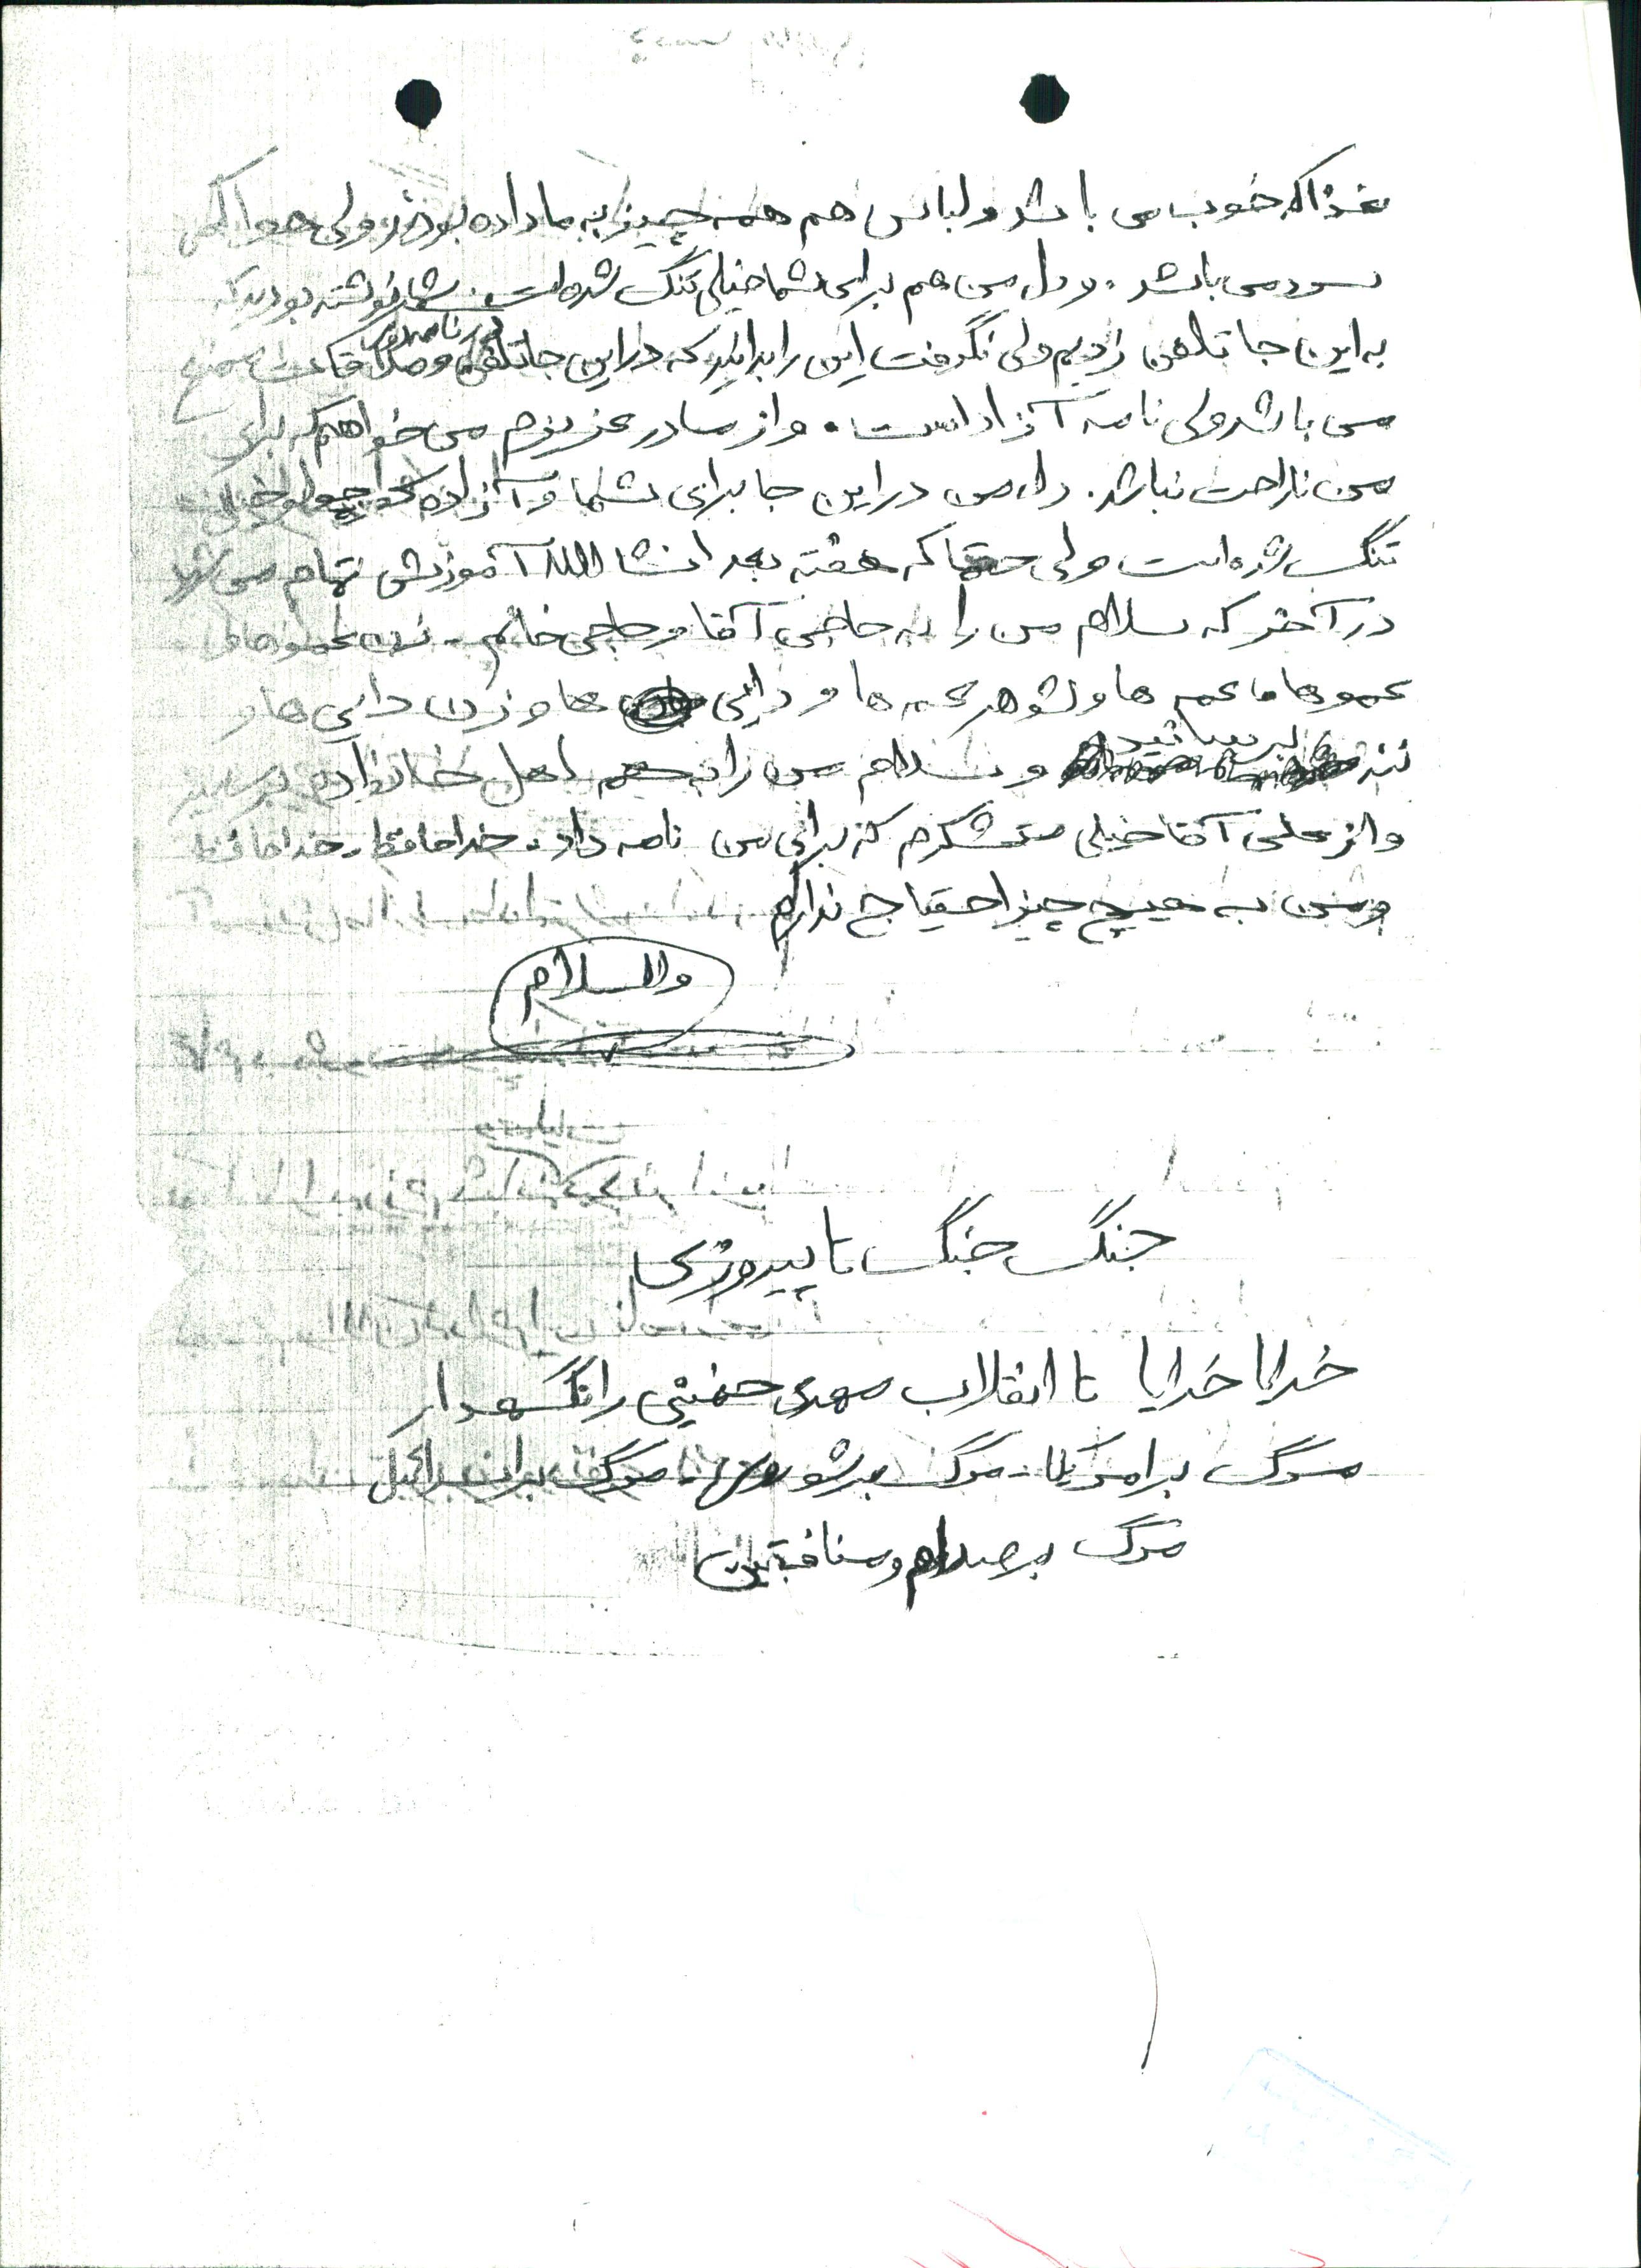 غذا که خوب می باشد و لباس هم همه چیز به ما داده بودند ولی هوا کمی
سرد می باشد. و دل من هم برای شما خیلی تنگ شده است. شما نوشته بودید که
به این جا تلفن زدیم ولی نگرفت این را بدانید که در این جا تلفن و ملاقات ممنوع
می باشد ولی نامه آزاد است. و از مادر عزیزم می خواهم که برای
من ناراحت نباشد. دل من در این جا برای شما و آزاده خیلی
تنگ شده است ولی حتما که هفته بعد انشا الله آموزش تمام می شود
در آخر که سلام من را به حاجی آقا و حاجی خانم - زن عموها و
عموها و عمه ها و شوهر عمه ها و دایی ها و زن دایی ها و
ننه برسانید و سلام من را به همه اهل خانواده برسانید
و از علی آقا خیلی متشکرم که برای من نامه داد. خداحافظ. خداحافظ
و من به هیچ چیز احتیاج ندارم
والسلام
جنگ جنگ تا پیروزی
خدایا خدایا تا انقلاب مهدی خمینی را نگهدار
مرگ بر امریکا - مرگ بر شوروی. مرگ بر اسرائیل
مرگ بر صدام و منافقین